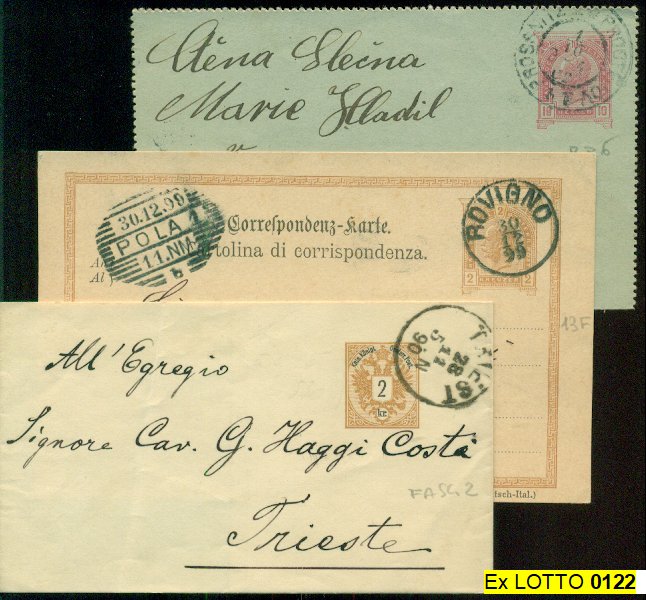 Ctěna Slečna
Marie Hladil
v
10 10
30.12.99
POLA 1
11.NM
b
Correspondenz-Karte.
Cartolina di corrispondenza.
An
Al
ROVIGNO
30
12
99
2 2
13F
All' Egregio
Signore Cav. G. Haggi Costa
Trieste
2
kr.
TRIEST
28
11
5.N
90
FASC 2
tsch-Ital.)
Ex LOTTO 0122